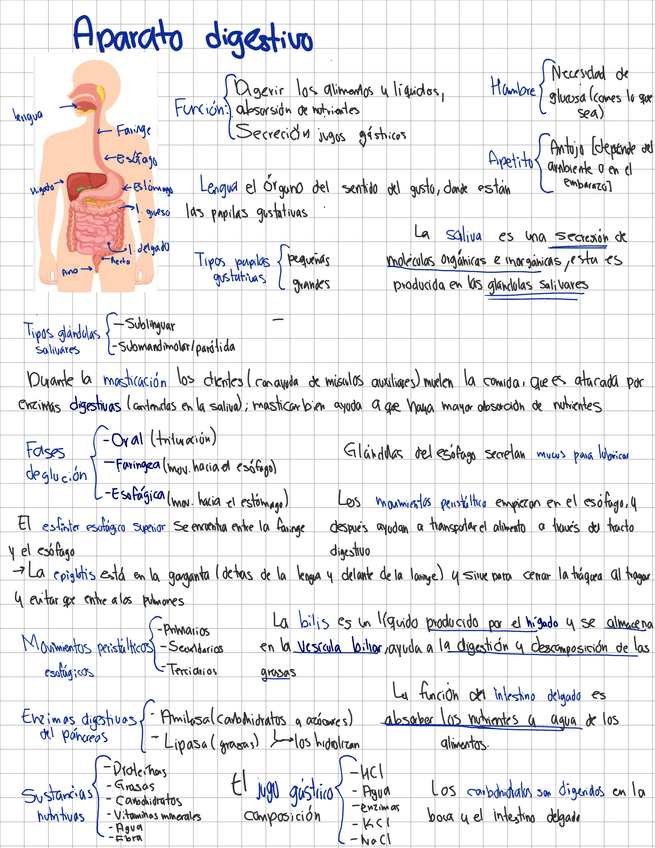 Aparato digestivo
lengua
Faringe
Esófago
Hígado
Estómago
I. grueso
I. delgado
Recto
Ano
Función:
Digerir los alimentos y líquidos,
absorsión de nutrientes
Secreción jugos gástricos
Hambre
Necesidad de
glucosa (comes lo que
sea)
Apetito
Antojo [depende del
ambiente o en el
embarazo]
Lengua el órgano del sentido del gusto, donde están
las papilas gustativas
Tipos papilas
gustativas
pequeñas
grandes
La saliva es una secresión de
moléculas orgánicas e inorgánicas, esta es
producida en las glándulas salivares
Tipos glándulas
salivares
- Sublingual
- Submandibular/parótida
Durante la masticación los dientes (con ayuda de músculos auxiliares) muelen la comida, que es atacada por
enzimas digestivas (contenidas en la saliva); masticar bien ayuda a que haya mayor absorción de nutrientes
Fases
deglución
- Oral (trituración)
- Faringea (mov. hacia el esófago)
- Esofágica (mov. hacia el estómago)
Glándulas del esófago secretan mucus para lubricar
Los movimientos peristáltico empiezan en el esófago, y
después ayudan a transportar el alimento a través del tracto
digestivo
El esfínter esofágico superior se encuentra entre la faringe
y el esófago
→ La epiglotis está en la garganta (detras de la lengua y delante de la laringe) y sirve para cerrar la tráquea al tragar
y evitar que entre a los pulmones
Movimientos peristálticos
esofágicos
- Primarios
- Secundarios
- Terciarios
La bilis es un líquido producido por el hígado y se almacena
en la vesícula biliar, ayuda a la digestión y descomposición de las
grasas
Enzimas digestivas
del páncreas
- Amilasa (carbohidratos a azúcares)
- Lipasa (grasas) los hidrolizan
La función del intestino delgado es
absorber los nutrientes y agua de los
alimentos.
Sustancias
nutritivas
- Proteínas
- Grasas
- Carbohidratos
- Vitaminas minerales
- Agua
- Fibra
El jugo gástrico
composición
- HCl
- Agua
- enzimas
- KCl
- NaCl
Los carbohidratos son digeridos en la
boca y el intestino delgado